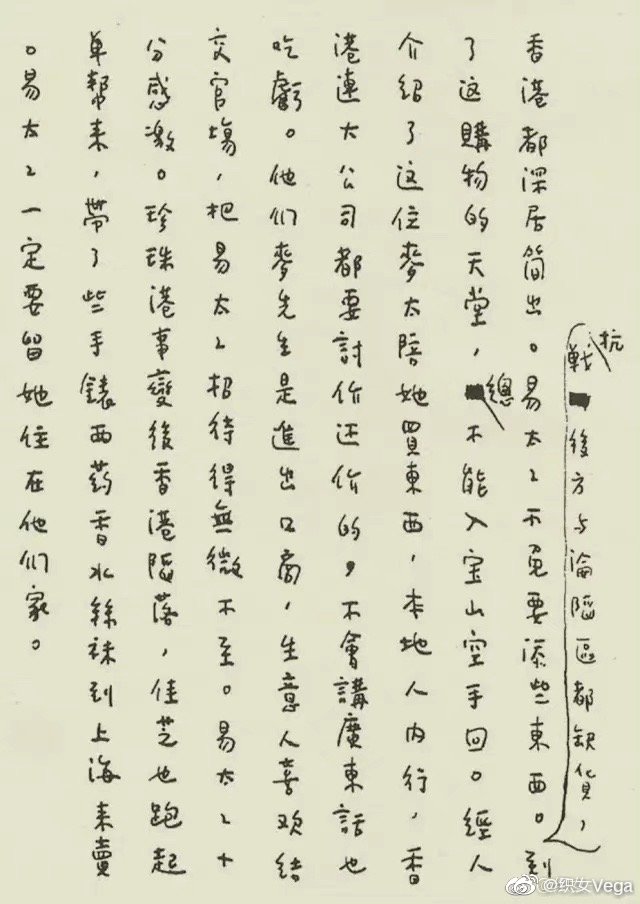 抗戰後方与淪陷區都缺貨，
香港都深居简出。易太〻不免要添些東西。到
了这購物的天堂，總不能入宝山空手回。經人
介紹了这位麥太陪她買東西，本地人内行，香
港連大公司都要討价还价的，不會講廣東話也
吃虧。他们麥先生是進出口商，生意人喜欢结
交官場，把易太〻招待得無微不至。易太〻十
分感激。珍珠港事變後香港陷落，佳芝也跑起
单幇来，帶了些手錶西葯香水絲袜到上海来賣
。易太〻一定要留她住在他们家。
@织女Vega